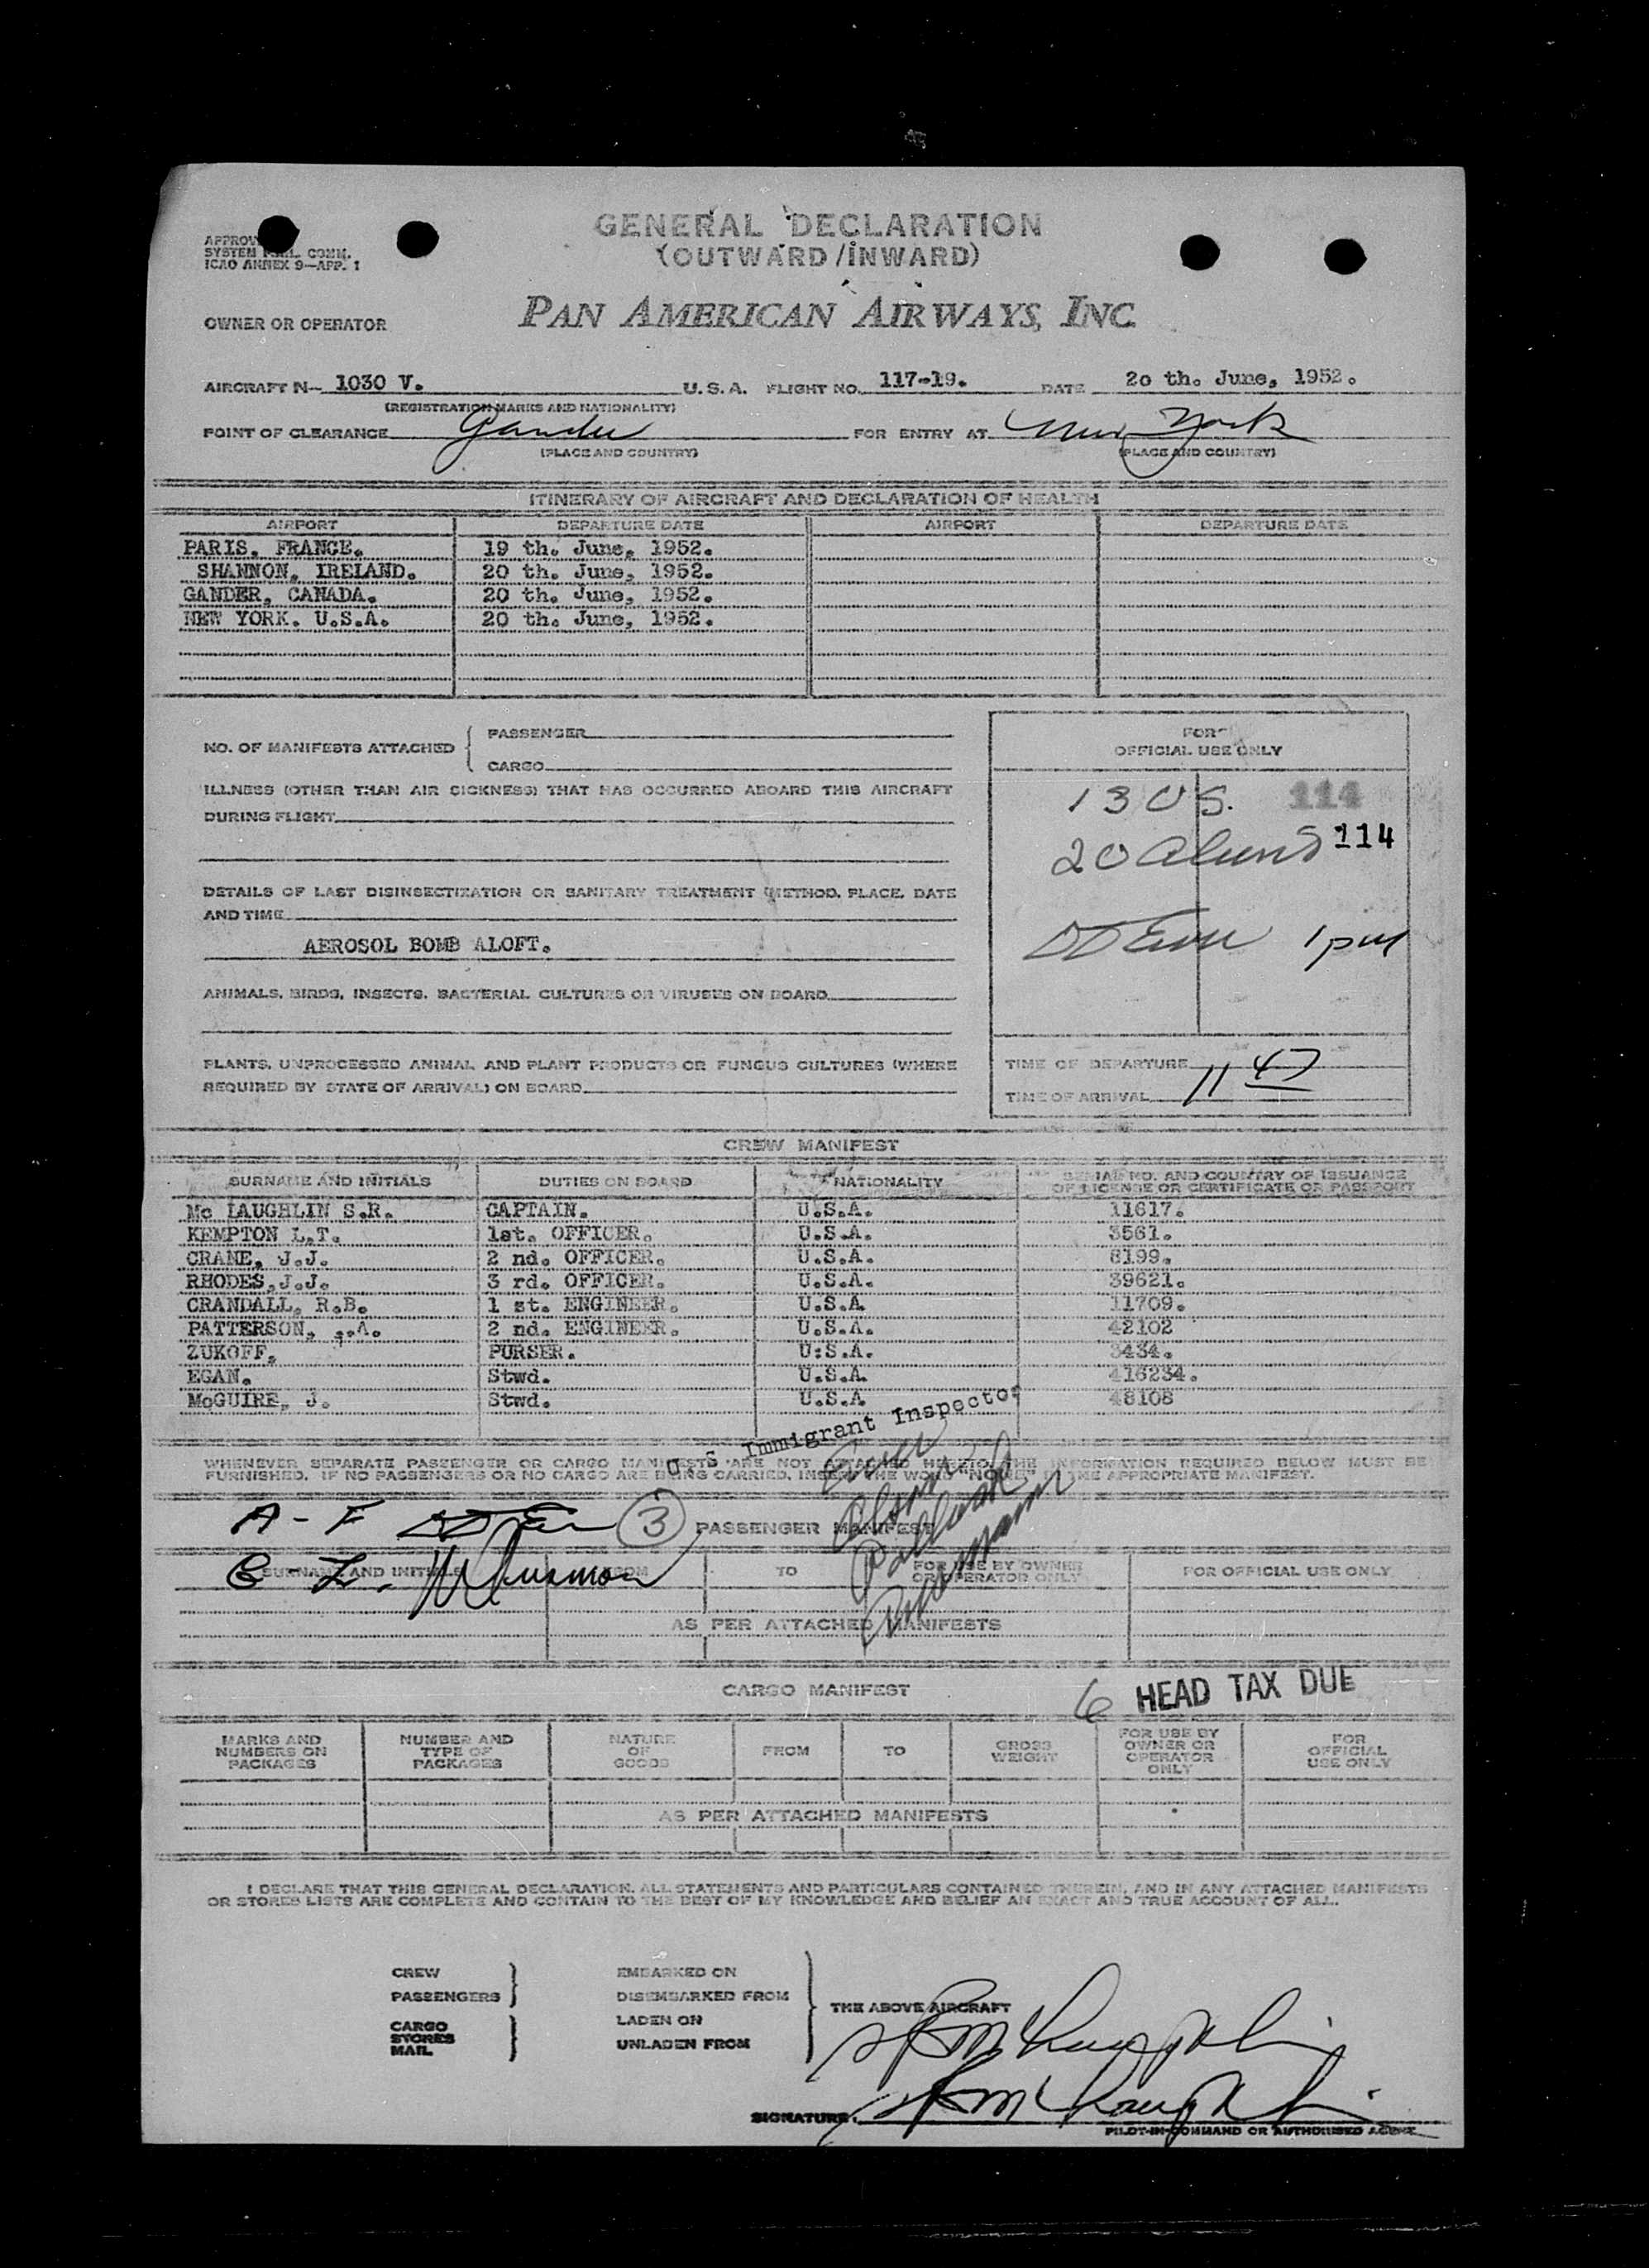 GENERAL DECLARATION
(OUTWARD/INWARD)
SYSTEM COMM.
ICAO ANNEX 9—APP. 1
OWNER OR OPERATOR PAN AMERICAN AIRWAYS, INC.
AIRCRAFT N— 1030 V. U.S.A. FLIGHT NO. 117-19. DATE 20 th. June, 1952.
(REGISTRATION MARKS AND NATIONALITY)
POINT OF CLEARANCE Gander FOR ENTRY AT New York
(PLACE AND COUNTRY) (PLACE AND COUNTRY)
ITINERARY OF AIRCRAFT AND DECLARATION OF HEALTH
AIRPORT DEPARTURE DATE AIRPORT DEPARTURE DATE
PARIS, FRANCE. 19 th. June, 1952.
SHANNON, IRELAND. 20 th. June, 1952.
GANDER, CANADA. 20 th. June, 1952.
NEW YORK. U.S.A. 20 th. June, 1952.
NO. OF MANIFESTS ATTACHED { PASSENGER
CARGO
FOR
OFFICIAL USE ONLY
ILLNESS (OTHER THAN AIR SICKNESS) THAT HAS OCCURRED ABOARD THIS AIRCRAFT
DURING FLIGHT
13 US. 114
20 Aliens 114
1 pm
DETAILS OF LAST DISINSECTIZATION OR SANITARY TREATMENT (METHOD, PLACE, DATE
AND TIME
AEROSOL BOMB ALOFT.
ANIMALS, BIRDS, INSECTS, BACTERIAL CULTURES OR VIRUSES ON BOARD
PLANTS, UNPROCESSED ANIMAL AND PLANT PRODUCTS OR FUNGUS CULTURES (WHERE
REQUIRED BY STATE OF ARRIVAL) ON BOARD
TIME OF DEPARTURE
TIME OF ARRIVAL 11 47
CREW MANIFEST
SURNAME AND INITIALS DUTIES ON BOARD NATIONALITY SERIAL NO. AND COUNTRY OF ISSUANCE
OF LICENSE OR CERTIFICATE OR PASSPORT
Mc LAUGHLIN S.R. CAPTAIN. U.S.A. 11617.
KEMPTON L.T. 1st. OFFICER. U.S.A. 3561.
CRANE, J.J. 2 nd. OFFICER. U.S.A. 8199.
RHODES,J.J. 3 rd. OFFICER. U.S.A. 39621.
CRANDALL, R.B. 1 st. ENGINEER. U.S.A. 11709.
PATTERSON, .A. 2 nd. ENGINEER. U.S.A. 42102
ZUKOFF, PURSER. U:S.A. 3434.
EGAN. Stwd. U.S.A. 416234.
McGUIRE, J. Stwd. U.S.A. 48108
U S Immigrant Inspector
WHENEVER SEPARATE PASSENGER OR CARGO MANIFESTS ARE NOT ATTACHED HERETO, THE INFORMATION REQUIRED BELOW MUST BE
FURNISHED. IF NO PASSENGERS OR NO CARGO ARE BEING CARRIED, INSERT THE WORD "NONE" IN THE APPROPRIATE MANIFEST.
A - F 3 PASSENGER MANIFEST
G - Z.
SURNAME AND INITIALS FROM TO FOR USE BY OWNER
OR OPERATOR ONLY FOR OFFICIAL USE ONLY
AS PER ATTACHED MANIFESTS
CARGO MANIFEST
6 HEAD TAX DUE
MARKS AND
NUMBERS ON
PACKAGES NUMBER AND
TYPE OF
PACKAGES NATURE
OF
GOODS FROM TO GROSS
WEIGHT FOR USE BY
OWNER OR
OPERATOR
ONLY FOR
OFFICIAL
USE ONLY
AS PER ATTACHED MANIFESTS
I DECLARE THAT THIS GENERAL DECLARATION, ALL STATEMENTS AND PARTICULARS CONTAINED THEREIN, AND IN ANY ATTACHED MANIFESTS
OR STORES LISTS ARE COMPLETE AND CONTAIN TO THE BEST OF MY KNOWLEDGE AND BELIEF AN EXACT AND TRUE ACCOUNT OF ALL.
CREW
PASSENGERS
CARGO
STORES
MAIL
EMBARKED ON
DISEMBARKED FROM
LADEN ON
UNLADEN FROM
THE ABOVE AIRCRAFT
SR McLaughlin
SIGNATURE: SR McLaughlin
PILOT-IN-COMMAND OR AUTHORISED AGENT